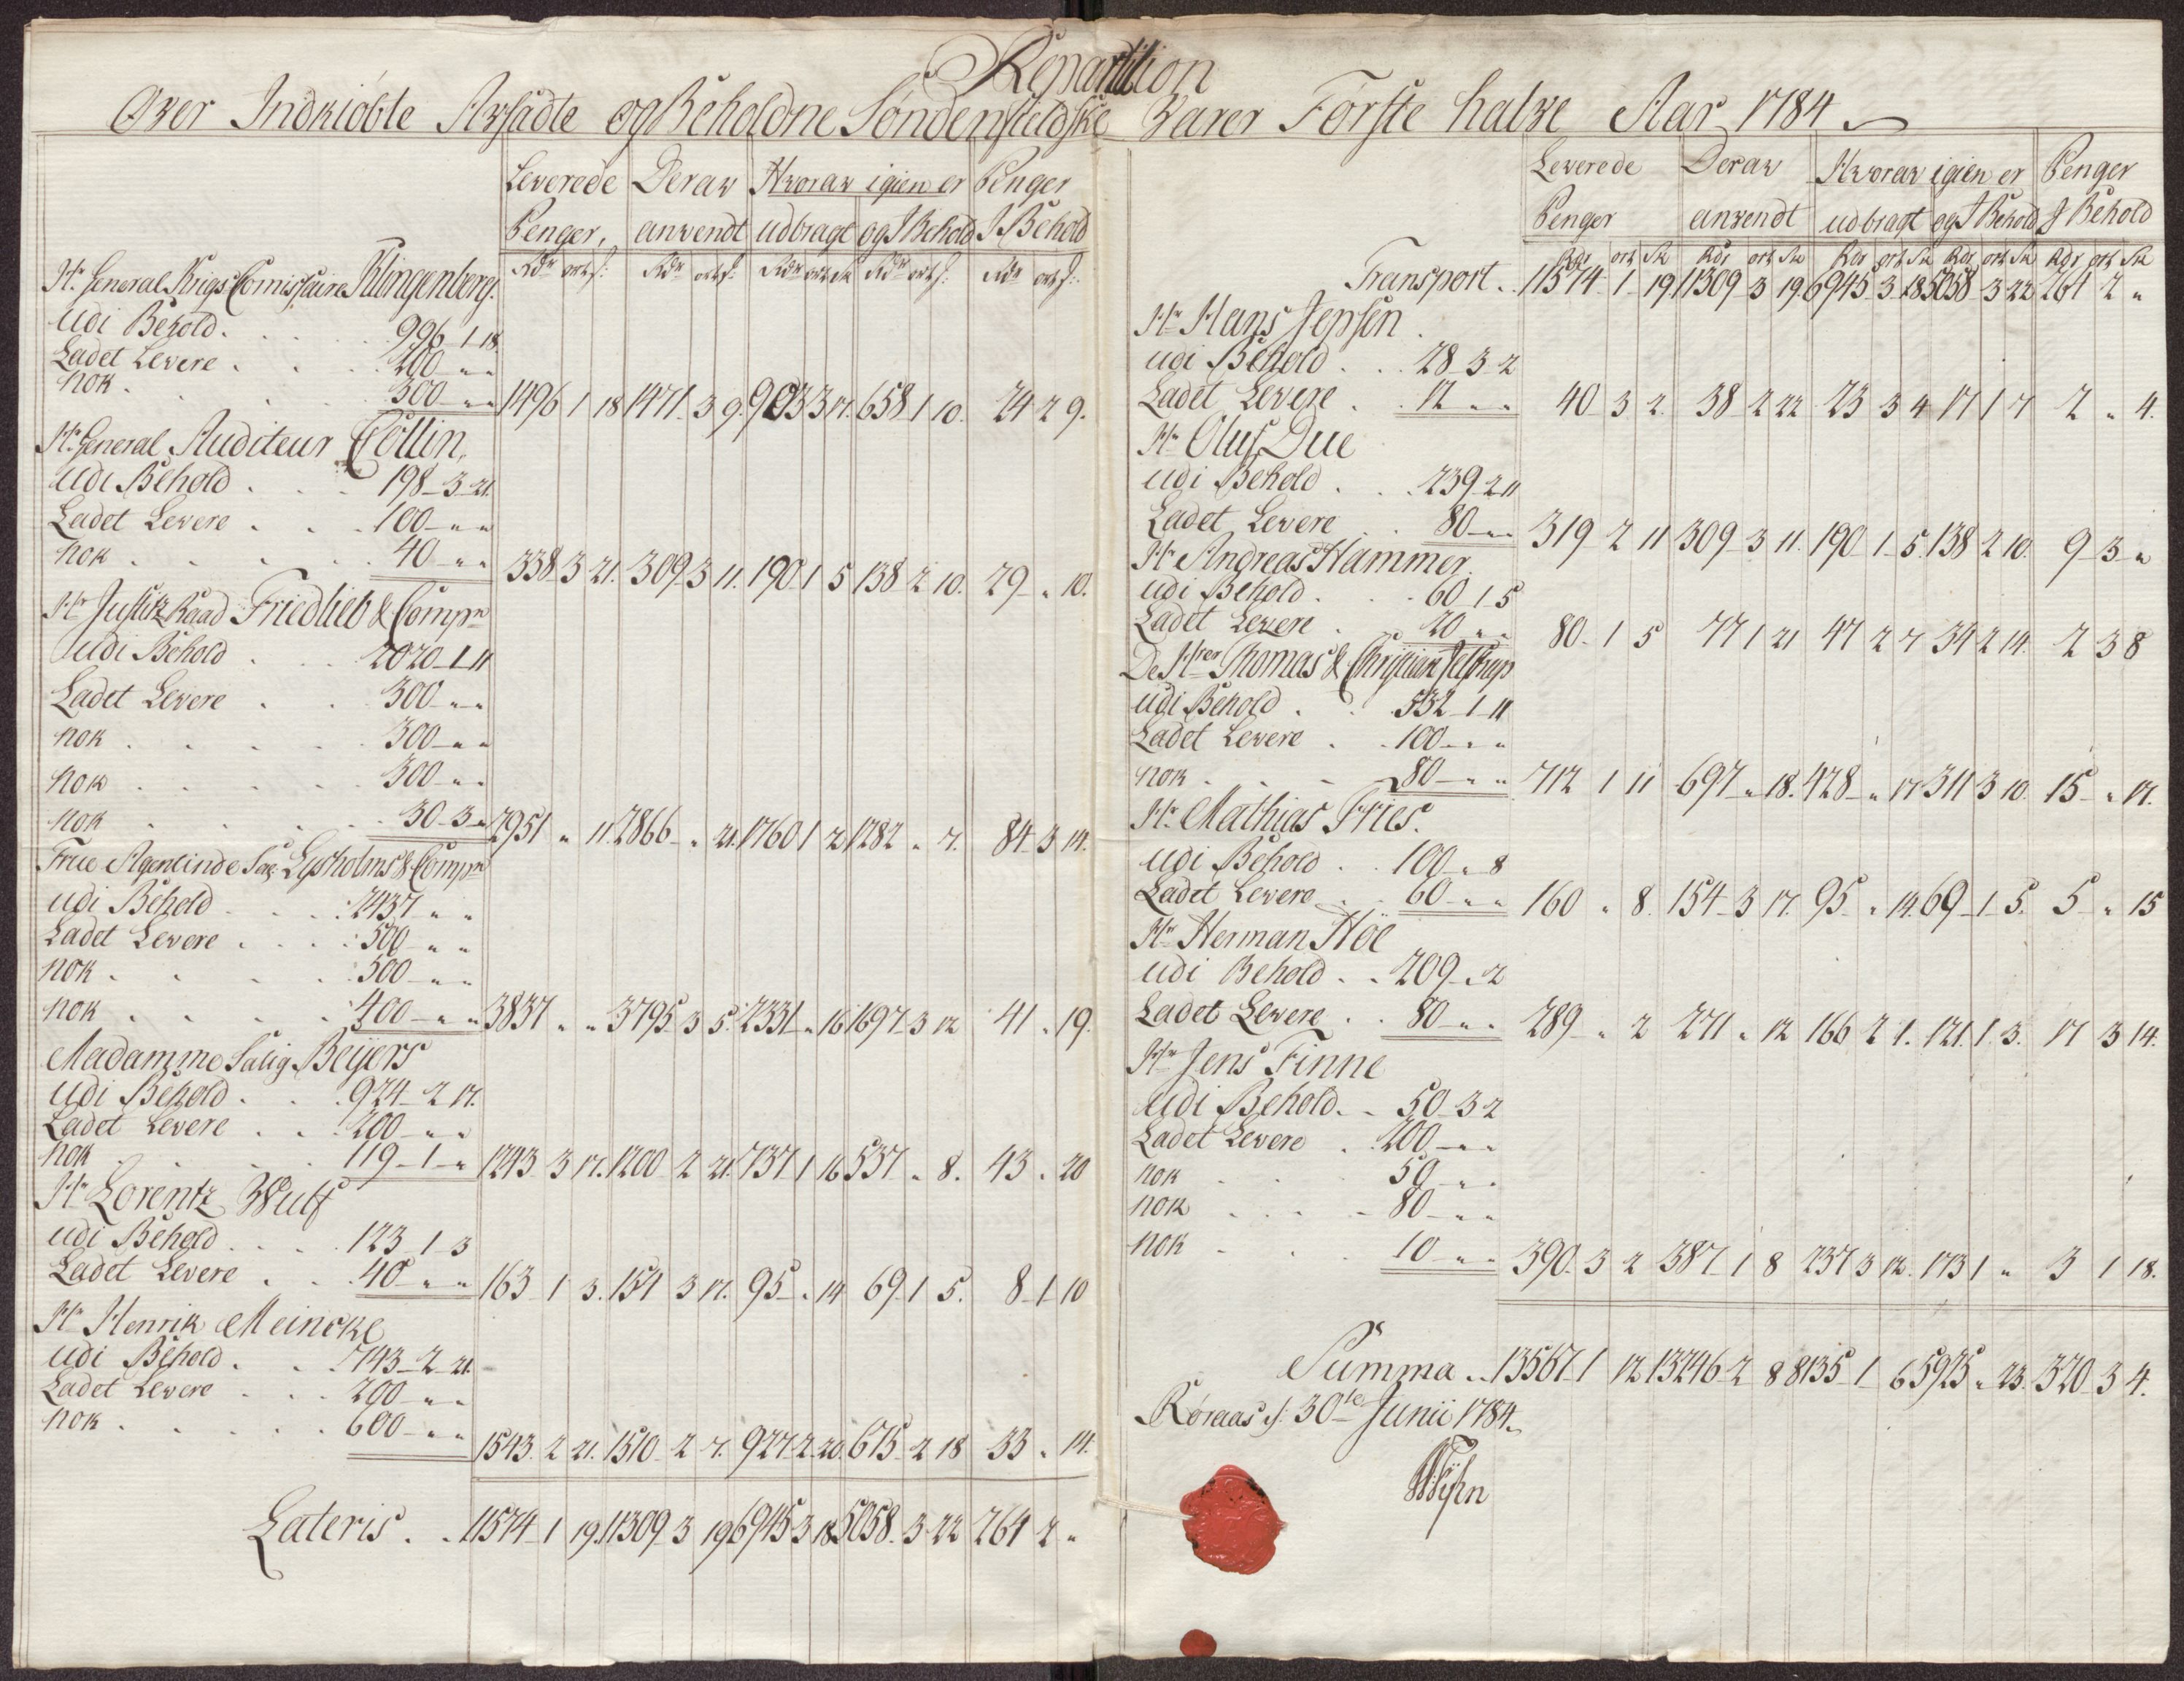 Repartition
Over Indkiøbte Afsadte og Beholdne Søndenfieldske Varer Første halve Aar 1784
Leverede Derav Hvorav igien er Penger
Penger, anvendt udbragt og I Behold I Behold
Rdr ort s: Rdr ort s: Rdr ort sk Rdr ort s: Rdr ort s:
Hr. General Krigs Comissaire Klingenberg.
Udi Behold . . 996 - 1 - 18.
Ladet Levere . . 200 - " "
nok . . 300 - " " 1496 1 18 1471 3 9. 903 3 17. 658 1 10. 24 2 9.
Hr. General Auditeur Collin,
Udi Behold . . 198 - 3 - 21.
Ladet Levere . . 100 - " "
nok . . 40 - " " 338 3 21. 309 3 11. 190 1 5 138 2 10. 29 " 10.
Hr Justitz Raad Friedlieb & Compn
Udi Behold . . 2020 - 1 - 11
Ladet Levere . . 300 - " "
nok . . 300 - " "
nok . . 300 - " "
nok . . 30 - 3 - " 2951 " 11. 2866 " 21. 1760 1 2 1282 " 7. 84 3 14.
Frue Agentinde Sal: Lysholms & Compn
Udi Behold . . 2437 " "
Ladet Levere . . 500 - " "
nok . . 500 - " "
nok . . 400 - " " 3837 " " 3795 3 5. 2331 " 16 1697 3 12 41 " 19.
Madamme Salig Beyers
Udi Behold . . 924 - 2 17.
Ladet Levere . . 200 - " "
nok . . 119 - 1 - " 1243 3 17. 1200 2 21. 737 1 16 537 " 8. 43 " 20
Hr Lorentz Wulf
udi Behold . . 123 - 1 - 3
Ladet Levere . . 40 " " 163 1 3. 154 3 17. 95 " 14 69 1 5. 8 1 10
Hr Henrik Meincke
Udi Behold . . 743 - 2 - 21.
Ladet Levere . . 200 - " "
nok . . 600 - " " 1543 2 21. 1510 2 7. 927 2 20. 675 2 18 33 " 14.
Lateris . . 11574 1 19. 11309 3 19 6945 3 18 5058 3 22 264 2 "
Leverede Derav Hvorav igien er Penger
Penger anvendt udbragt og I Behold I Behold
Rdr ort Sk Rdr ort Sk Rdr ort Sk Rdr ort Sk Rdr ort Sk
Transport . . 11574 1 19 11309 3 19. 6945 3 18 5058 3 22 264 2 "
Hr Hans Jepsen
udi Behold . . 28 - 3 - 2
Ladet Levere . . 12 " " 40 3 2. 38 2 22 23 3 4 17 1 7 2 " 4.
Hr Oluf Due
udi Behold . . 239 - 2 11
Ladet Levere . 80 - " " 319 2 11 309 3 11. 190 1 5. 138 2 10. 9 3 "
Hr Andreas Hammer.
udi Behold . . 60 1 5
Ladet Levere . 20 " " 80 1 5 77 1 21 47 2 7 34 2 14. 2 3 8
De Hrer Thomas & Christian Jelstrup
Udi Behold . . 532 - 1 - 11
Ladet Levere . . 100 - " "
nok . . 80 - " " 712 1 11 697 " 18. 428 " 17 311 3 10. 15 " 17.
Hr. Mathias Fries.
udi Behold . . 100 " 8
Ladet Levere . . 60 " " 160 " 8. 154 3 17. 95 " 14. 69 1 5. 5 " 15
Hr Herman Høe
udi Behold . . 209 " 2
Ladet Levere . . 80 " " 289 " 2 271 " 12 166 2 1. 121. 1 3. 17 3 14.
Hr Jens Finne
Udi Behold . . 50 - 3 2
Ladet Levere . 200 - " "
nok . . 50 - " "
nok . . 80 - " "
nok . . 10 " " 390 3 2 387 1 8 237 3 12. 173 1 " 3 1 18.
Summa . . 13567 1 12 13246 2 8 8135 1 6 5925 " 23. 320 3 4.
Røraas d: 30te Junii 1784.